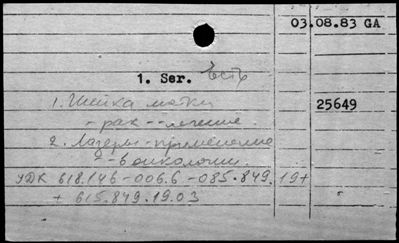 03.08.83 GA
1. Ser. Есть
1. Шейка матки
25649
- рак - - лечение.
2. Лазеры - применение
- в онкологии.
УДК 618.146-006.6-085.849.19+
+ 615.849.19.03